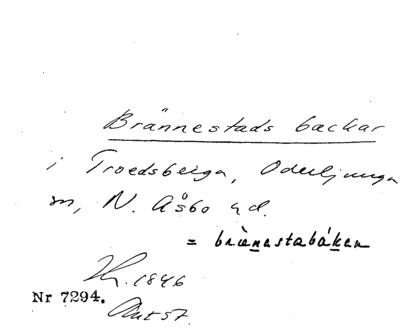 Brännestads backar
i Troedsberga, Oderljunga
sn, N. Åsbo hd.
= brànestabákan
1846
Nr 7294.